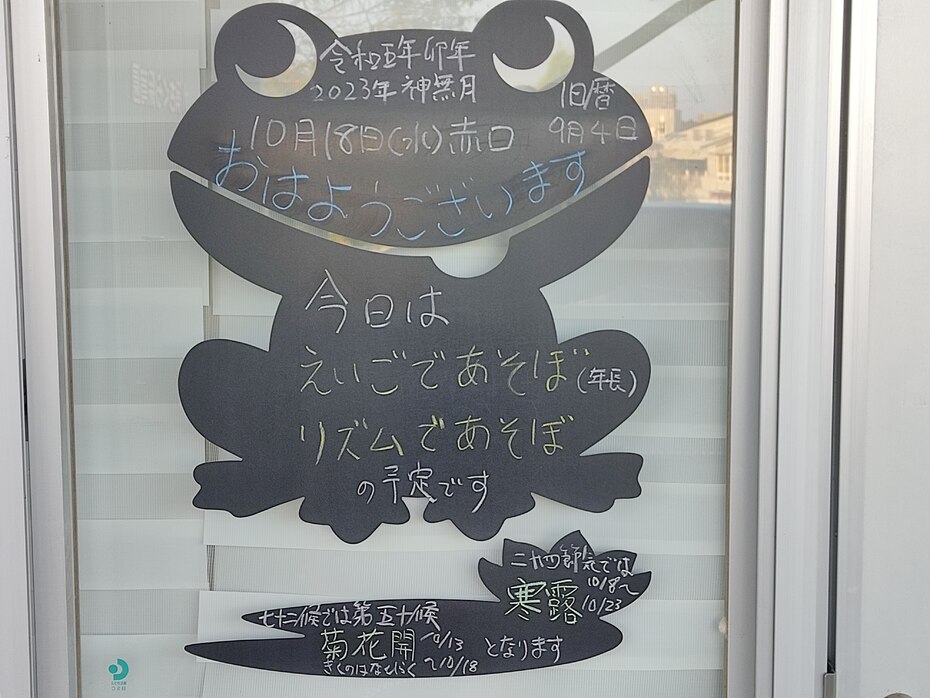 令和五年卯年
2023年神無月
旧暦
10月18日(水)赤口
9月4日
おはようございます
今日は
えいごであそぼ(年長)
リズムであそぼ
の予定です
二十四節気では
寒露
10/8〜
10/23
七十二候では第五十候
菊花開
10/13
〜10/18
きくのはなひらく
となります